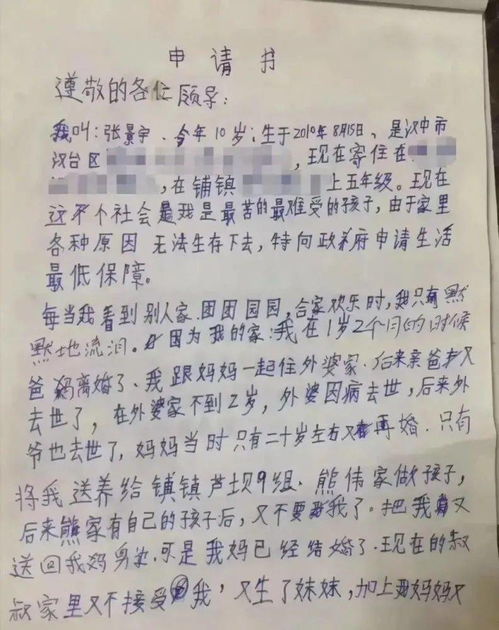 申请书
尊敬的各位领导:
我叫:张景宇、今年10岁;生于2010年8月15日、是汉中市
汉台区,现在寄住在
,在铺镇上五年级。现在
这个社会是我是最苦的最难受的孩子,由于家里
各种原因无法生存下去,特向政府申请生活
最低保障。
每当我看到别人家.团团园园,合家欢乐时,我只有默
默地流泪。因为我的家:我在1岁2个月的时候
爸妈离婚了、我跟妈妈一起住外婆家.后来亲爸才又
去世了,在外婆家不到2岁,外婆因病去世,后来外
爷也去世了,妈妈当时只有二十岁左右又再婚.只有
将我送养给铺镇芦坝9组.熊伟家做孩子,
后来熊家有自己的孩子后,又不要我了。把我又
送回我妈.可是我妈已经结婚了.现在的叔
叔家里又不接受我,又生了妹妹,加上我妈妈又